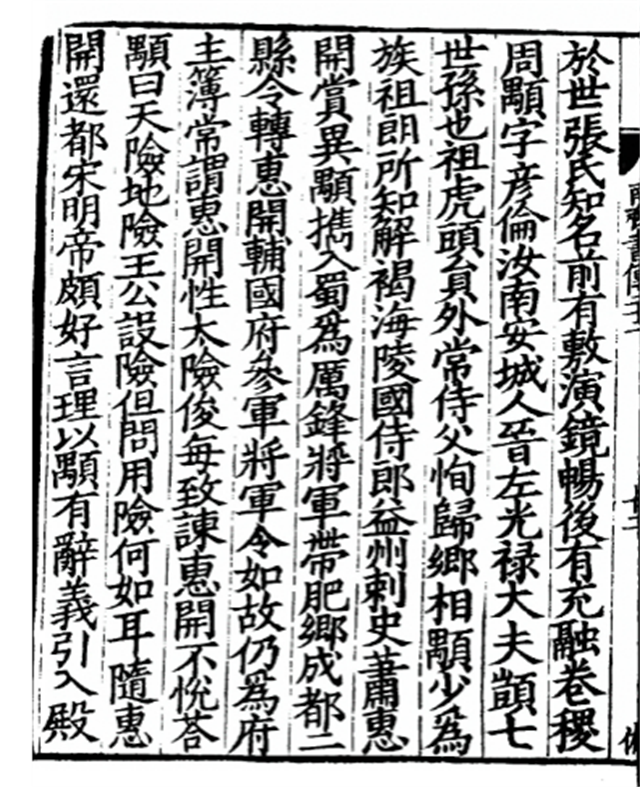 於世張氏知名前有敷演鏡暢後有充融卷稷
周顒字彥倫汝南安城人晉左光祿大夫顗七
世孫也祖虎頭員外常侍父恂歸鄉相顒少為
族祖朗所知解褐海陵國侍郎益州刺史蕭惠
開賞異顒攜入蜀為厲鋒將軍帶肥鄉成都二
縣令轉惠開輔國府參軍將軍令如故仍為府
主簿常謂惠開性太險俊每致諫惠開不悅荅
顒曰天險地險王公設險但問用險何如耳隨惠
開還都宋明帝頗好言理以顒有辭義引入殿